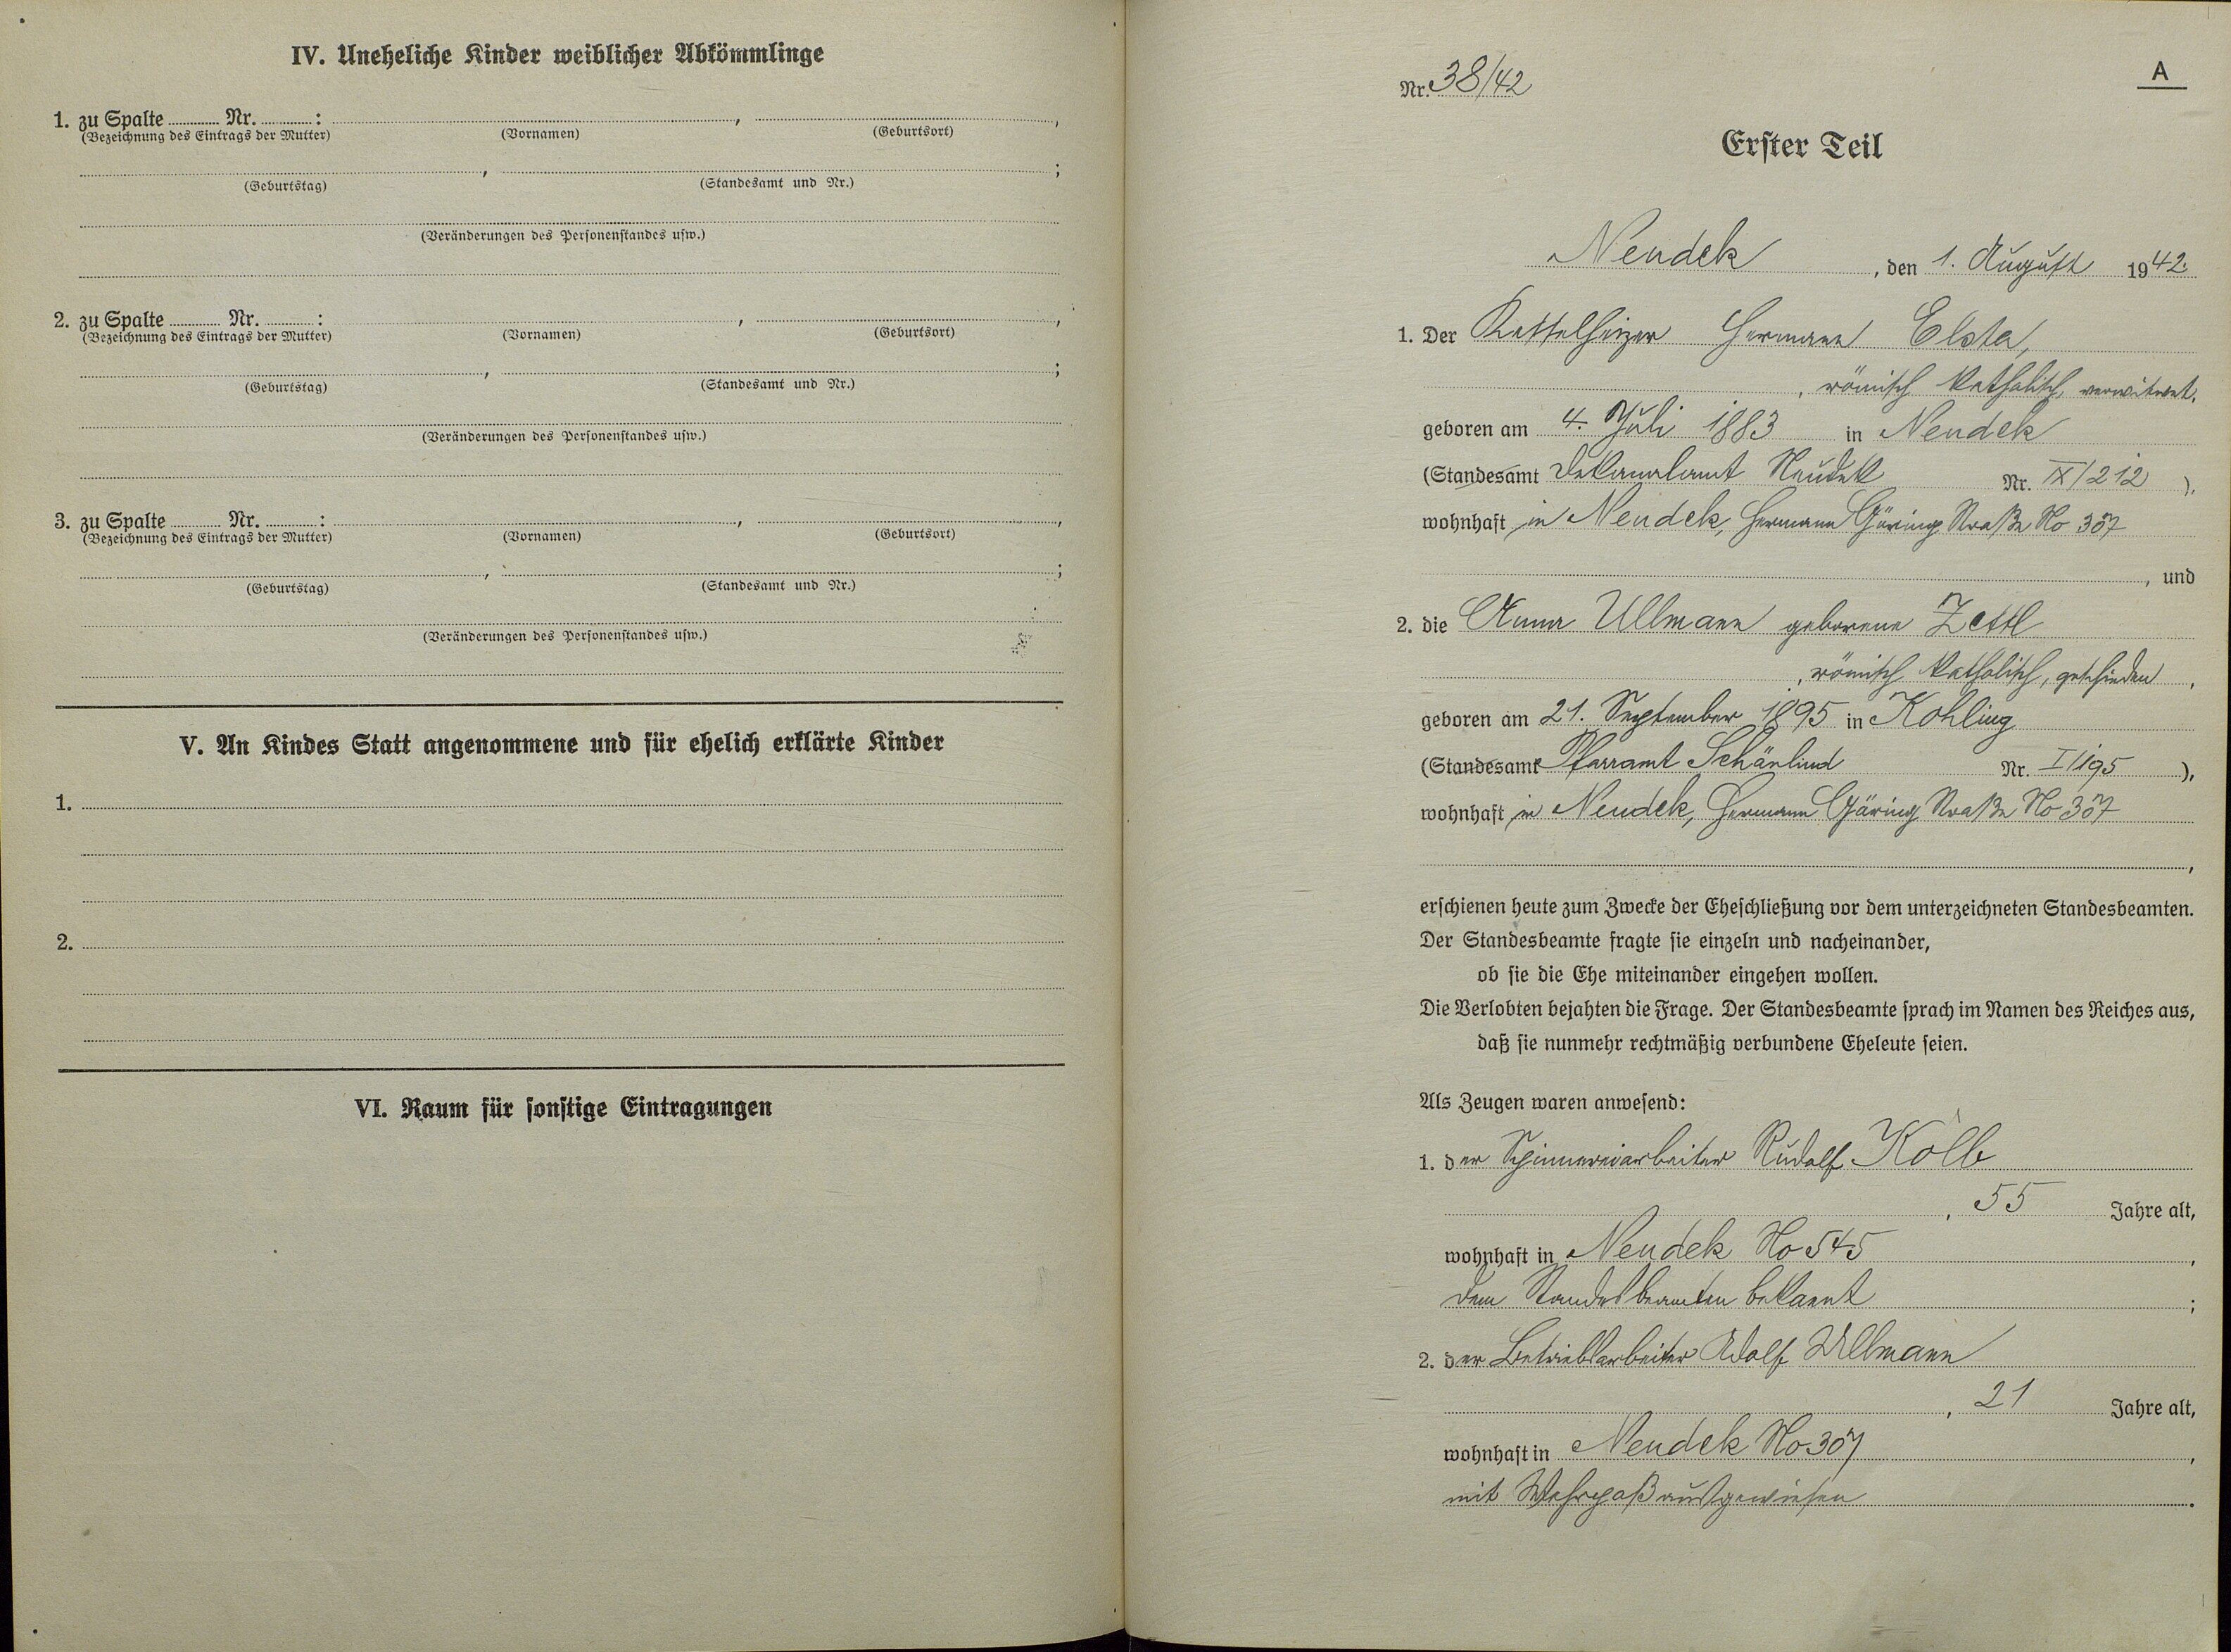 IV. Uneheliche Kinder weiblicher Abkömmlinge
1. zu Spalte ........ Nr. ........ : , ,
(Bezeichnung des Eintrags der Mutter) (Vornamen) (Geburtsort)
, ;
(Geburtstag) (Standesamt und Nr.)
(Veränderungen des Personenstandes usw.)
2. zu Spalte ........ Nr. ........ : , ,
(Bezeichnung des Eintrags der Mutter) (Vornamen) (Geburtsort)
, ;
(Geburtstag) (Standesamt und Nr.)
(Veränderungen des Personenstandes usw.)
3. zu Spalte ........ Nr. ........ : , ,
(Bezeichnung des Eintrags der Mutter) (Vornamen) (Geburtsort)
, ;
(Geburtstag) (Standesamt und Nr.)
(Veränderungen des Personenstandes usw.)
V. An Kindes Statt angenommene und für ehelich erklärte Kinder
1.
2.
VI. Raum für sonstige Eintragungen
A
Nr. 38/42
Erster Teil
Neudek, den 1. August 1942.
1. Der Kesselheizer Hermann Elsta,
, römisch katholisch, verwitwet,
geboren am 4. Juli 1883 in Neudek
(Standesamt Dekanalamt Neudek Nr. IX/212 ),
wohnhaft in Neudek, Hermann Göring Straße No 307
, und
2. die Anna Ullmann geborene Zettl
, römisch katholisch, geschieden,
geboren am 21. September 1895 in Kohling
(Standesamt Pfarramt Schönlind Nr. I/195 ),
wohnhaft in Neudek, Hermann Göring Straße No 307
,
erschienen heute zum Zwecke der Eheschließung vor dem unterzeichneten Standesbeamten.
Der Standesbeamte fragte sie einzeln und nacheinander,
ob sie die Ehe miteinander eingehen wollen.
Die Verlobten bejahten die Frage. Der Standesbeamte sprach im Namen des Reiches aus,
daß sie nunmehr rechtmäßig verbundene Eheleute seien.
Als Zeugen waren anwesend:
1. der Spinnereiarbeiter Rudolf Kölb
, 55 Jahre alt,
wohnhaft in Neudek No 545,
dem Standesbeamten bekannt ;
2. der Betriebsarbeiter Adolf Ullmann
, 21 Jahre alt,
wohnhaft in Neudek No 307,
mit Wehrpaß ausgewiesen.